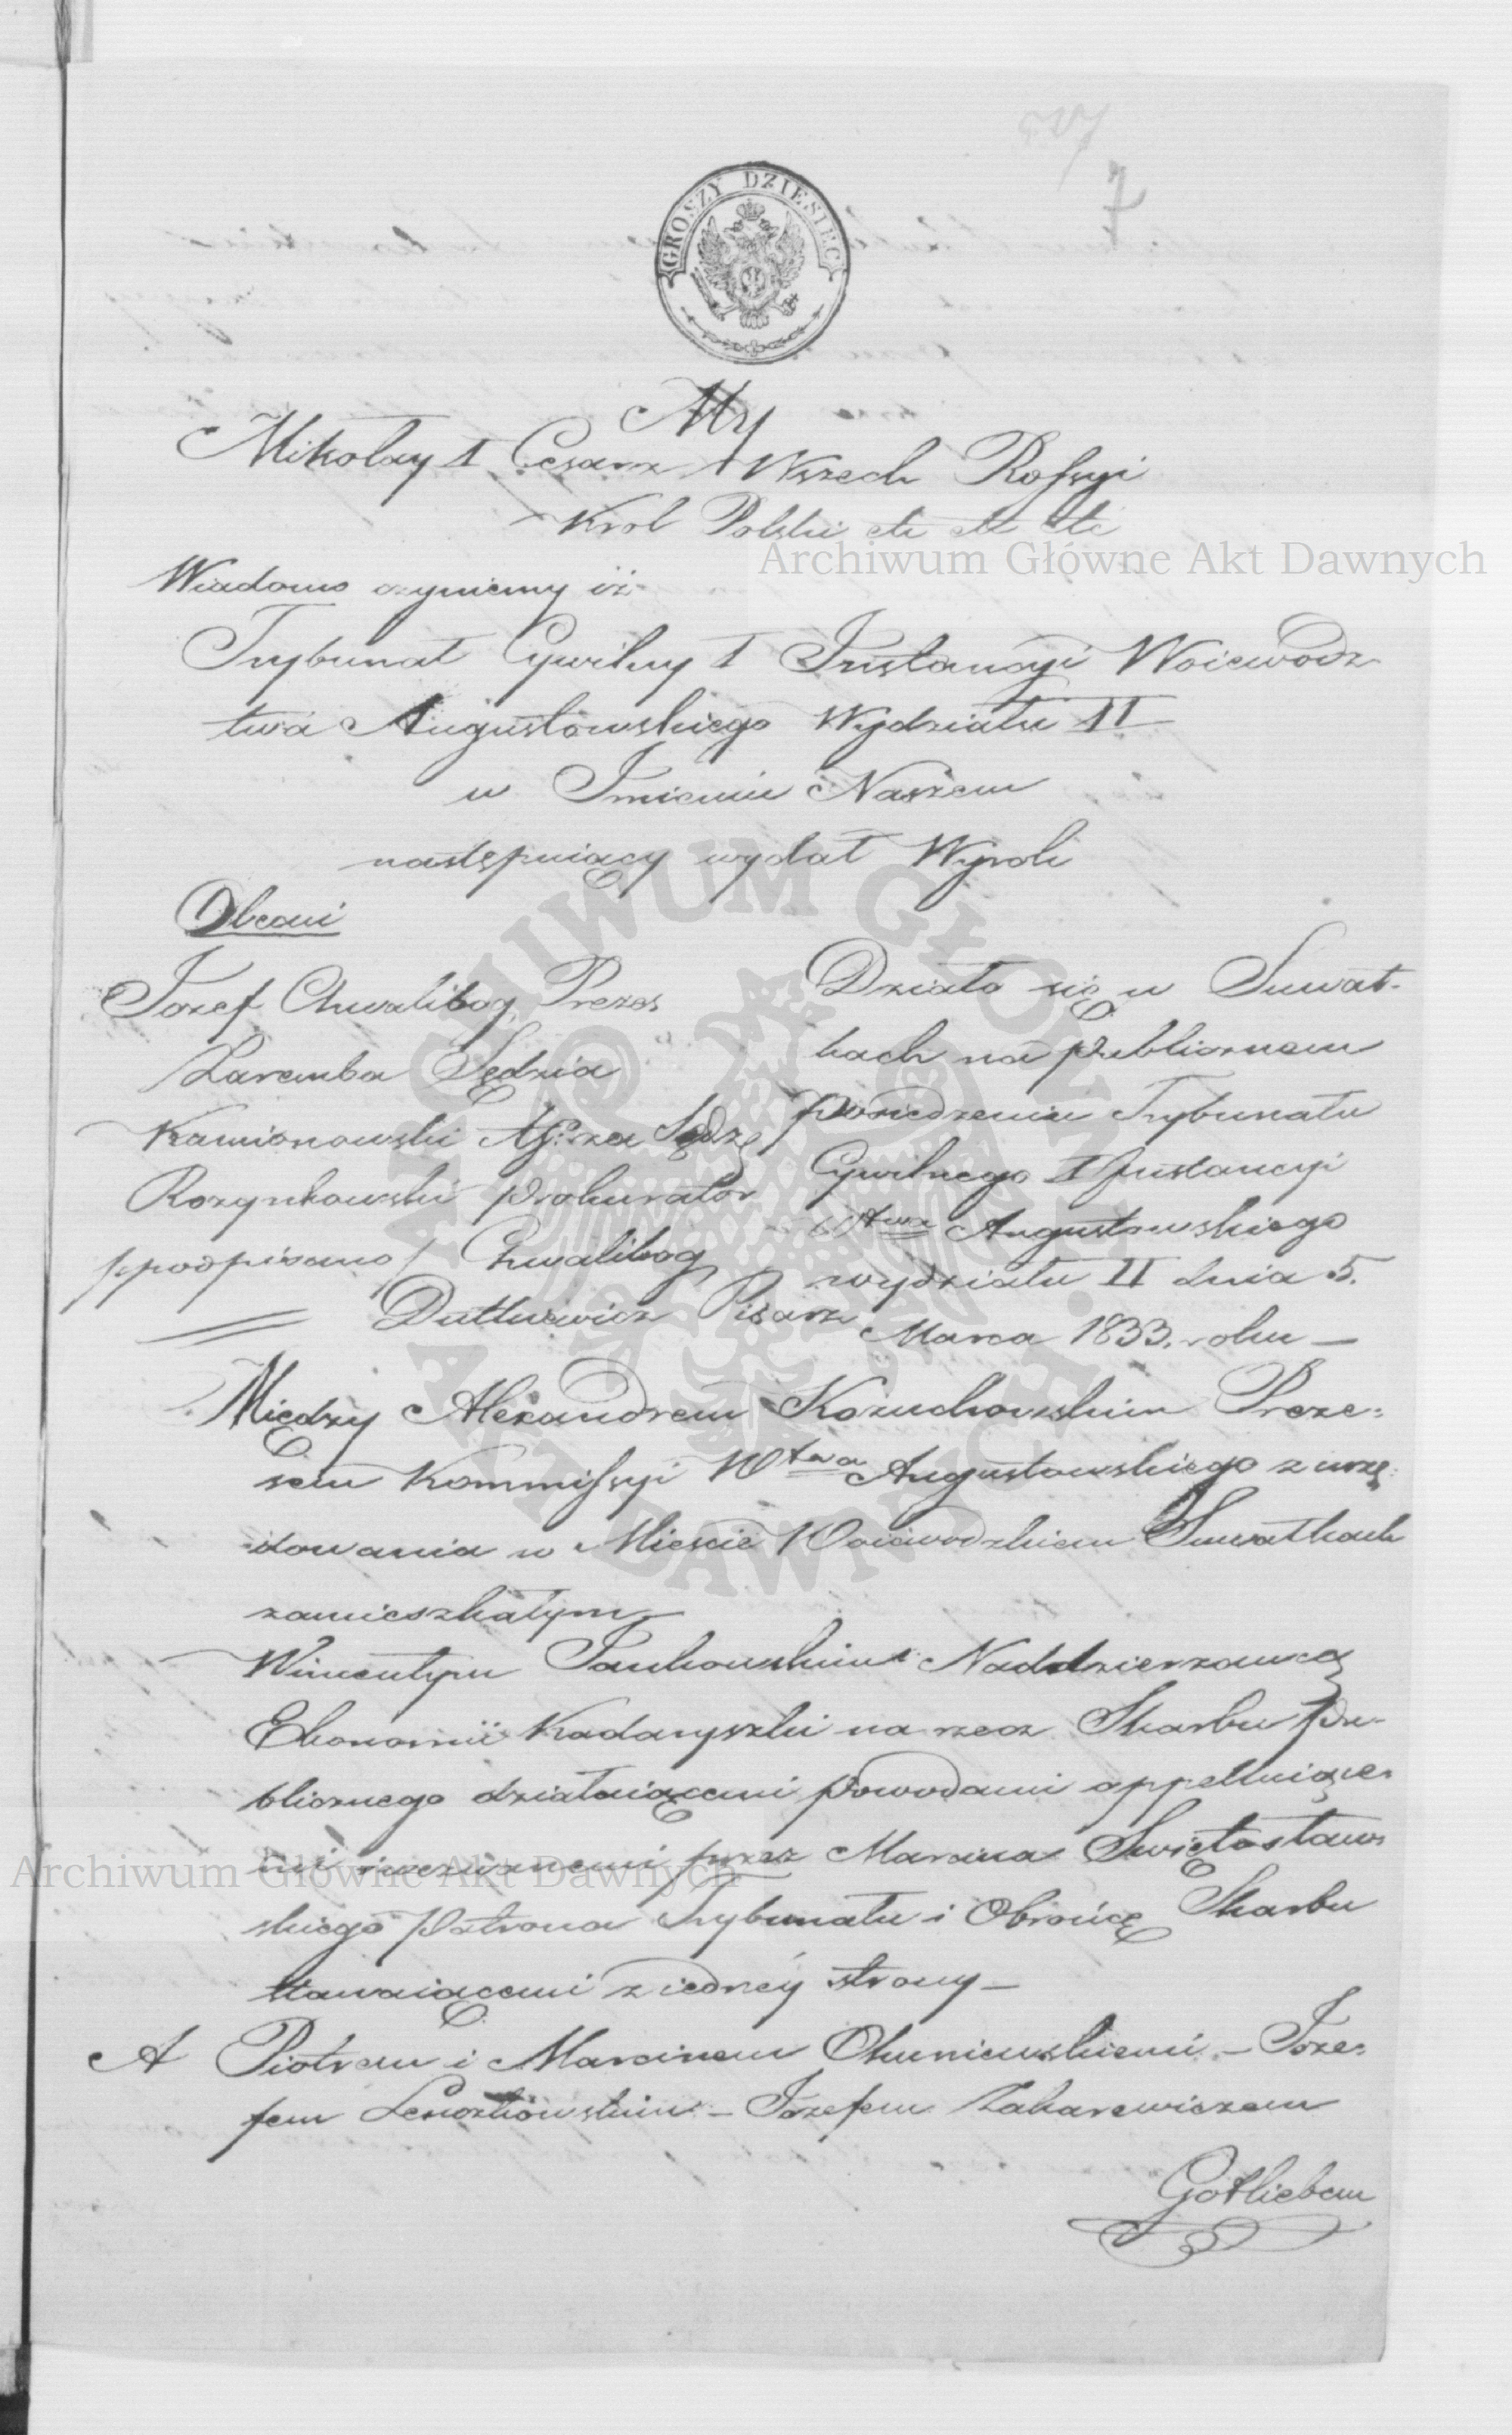 7
GROSZY DZIESIĘĆ
My
Mikołay I Cesarz Wszech Rossyi
Krol Polski etc etc etc
Wiadomo czyniemy iż
Trybunał Cywilny I Instancyi Woiewodz-
twa Augustowskiego Wydziału II
w Imieniu Naszem
następuiący wydał Wyrok
Obecni
Jozef Chwalibog Prezes
Zaremba Sędzia
Kamionowski As: za Sędzę
Rozynkowski Prokurator
/podpisano/ Chwalibog
Dutkiewicz Pisarz
Działo się w Suwał-
kach na publicznem
posiedzeniu Trybunału
Cywilnego I Instancyi
Wtwa Augustowskiego
wydziału II dnia 5.
Marca 1833. roku —
Między Alexandrem Kozuchowskim Preze-
sem Kommissyi Wtwa Augustowskiego z urzę-
dowania w Mieście Woiewodzkiem Suwałkach
zamieszkałym
Wincentym Jankowskim Naddzierzawcą
Ekonomii Kadaryszki na rzecz Skarbu Pu-
blicznego działaiącemi powodami appelluiące-
mi przez Marcina Swiętosław-
skiego Patrona Trybunału i Obrońcę Skarbu
stawaiącemi z iedney strony —
A Piotrem i Marcinem Okuniewskiemi — Joze-
fem — Jozefem Zakarewiczem
Gotliebem
Archiwum Główne Akt Dawnych
Archiwum Główne Akt Dawnych
ARCHIWUM GŁÓWNE AKT DAWNYCH